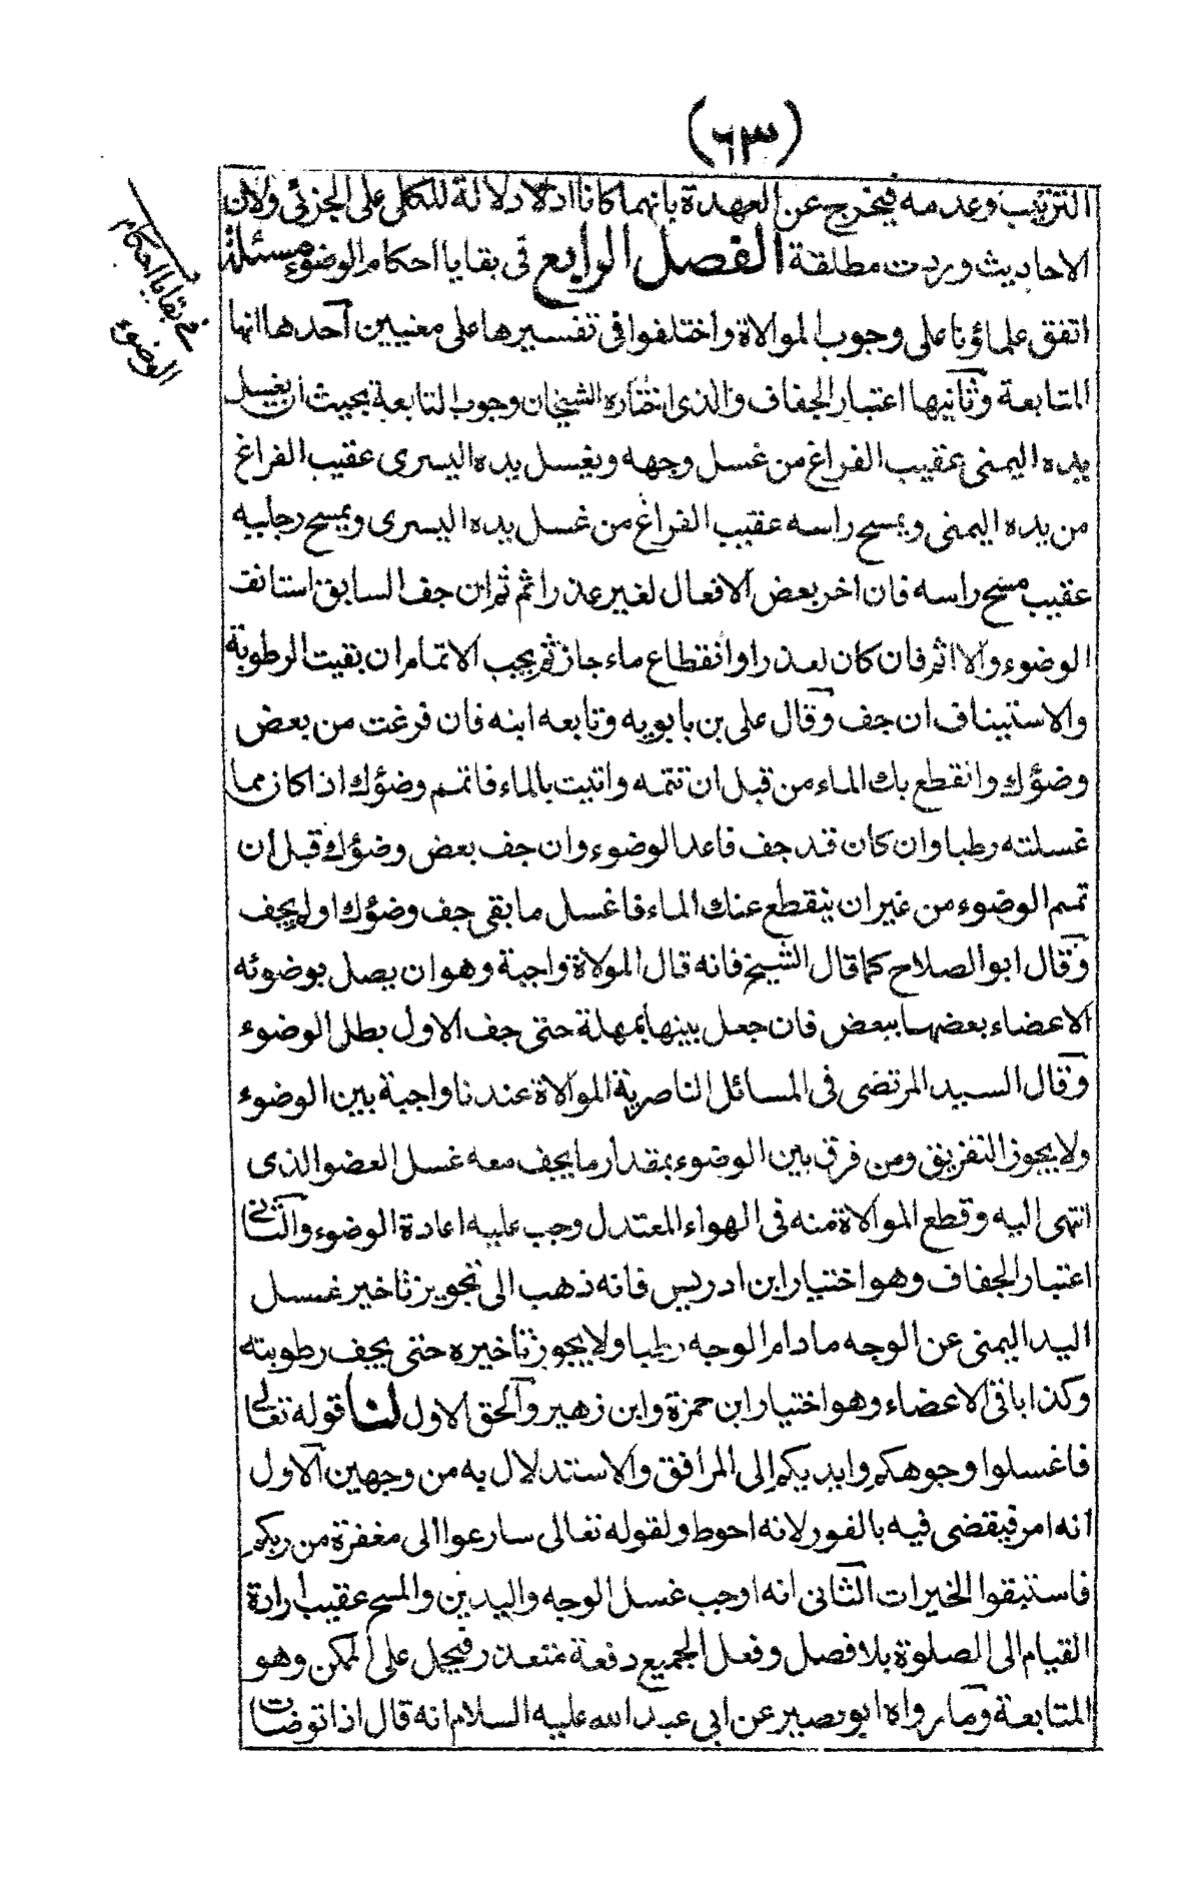 (٦٣)
الترتيب وعدمه فيخرج عن العهدة بانهما كانا اذ لا دلالة للكلى على الجزئى ولان
الاحاديث وردت مطلقة الفصل الرابع فى بقايا احكام الوضوء مسئلة
فى بقايا احكام
الوضوء
اتفق علماؤنا على وجوب الموالاة واختلفوا فى تفسيرها على معنيين احدها انها
المتابعة وثانيها اعتبار الجفاف والذى اختاره الشيخان وجوب المتابعة بحيث ان يغسل
يده اليمنى عقيب الفراغ من غسل وجهه ويغسل يده اليسرى عقيب الفراغ
من يده اليمنى ويمسح راسه عقيب الفراغ من غسل يده اليسرى ويمسح رجليه
عقيب مسح راسه فان اخر بعض الافعال لغير عذر اثم ثم ان جف السابق استانف
الوضوء والا اثم فان كان لعذر او انقطاع ماء جاز ثم يجب الاتمام ان بقيت الرطوبة
والاستيناف ان جف وقال على بن بابويه وتابعه ابنه فان فرغت من بعض
وضؤك وانقطع بك الماء من قبل ان تتمه واتيت بالماء فاتمم وضؤك اذا كان مما
غسلته رطبا وان كان قد جف فاعد الوضوء وان جف بعض وضؤك قبل ان
تمم الوضوء من غير ان ينقطع عنك الماء فاغسل ما بقى جف وضؤك اولم يجف
وقال ابو الصلاح كما قال الشيخ فانه قال الموالاة واجبة وهو ان يصل بوضوئه
الاعضاء بعضها ببعض فان جعل بينها بمهلة حتى جف الاول بطل الوضوء
وقال السيد المرتضى فى المسائل الناصرية الموالاة عندنا واجبة بين الوضوء
ولا يجوز التفريق ومن فرق بين الوضوء بمقدار ما يجف معه غسل العضو الذى
انتهى اليه وقطع الموالاة منه فى الهواء المعتدل وجب عليه اعادة الوضوء والثانى
اعتبار الجفاف وهو اختيار ابن ادريس فانه ذهب الى تجويز تاخير غسل
اليد اليمنى عن الوجه مادام الوجه رطبا ولا يجوز تاخيره حتى يجف رطوبته
وكذا باقى الاعضاء وهو اختيار ابن حمزة وابن زهير والحق الاول لنا قوله تعالى
فاغسلوا وجوهكم وايديكم الى المرافق والاستدلال به من وجهين الاول
انه امر فيقضى فيه بالفور لانه احوط ولقوله تعالى سارعوا الى مغفرة من ربكم
فاستبقوا الخيرات الثانى انه اوجب غسل الوجه واليدين والمسح عقيب ارادة
القيام الى الصلوة بلا فصل وفعل الجميع دفعة متعذر فيحمل على الممكن وهو
المتابعة وما رواه ابو بصير عن ابى عبد الله عليه السلام انه قال اذا توضات